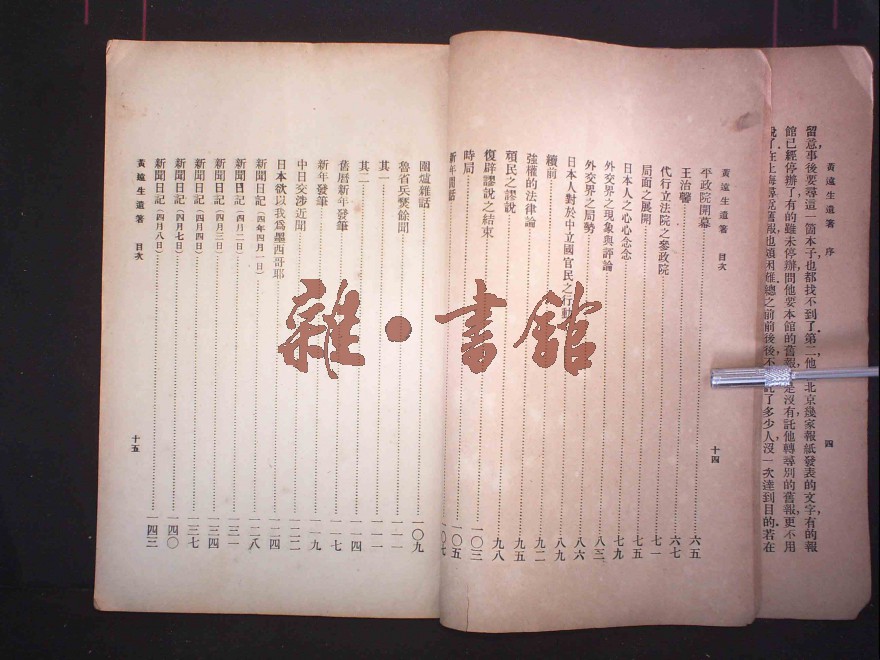 黃遠生遺著 序 四
留意事後要尋這一箇本子，也都找不到了．第二，他北京幾家報紙發表的文字，有的報
館已經停辦了；有的雖未停辦，問他要本館的舊報，是沒有；託他轉尋別的舊報，更不用
說了．在上海尋覓舊報，也頗困難．總之前前後後，不託了多少人，沒一次達到目的．若在
黃遠生遺著 目次 十四
平政院開幕 六五
王治馨 六七
代行立法院之參政院 七一
局面之展開 七五
日本人之心心念念 七九
外交界之現象與評論 八三
外交界之局勢 八六
日本人對於中立國官民之行動 八九
續前 九二
強權的法律論 九五
頑民之謬說 九八
復辟謬說之結束 一〇三
時局 一〇五
新年閒話 一〇七
圍爐雜話 一〇九
魯省兵燹餘聞 一一一
其一 一一一
其二 一一四
舊曆新年發筆 一一七
新年發筆 一一九
中日交涉近聞 一二二
日本欲以我爲墨西哥耶 一二四
新聞日記（四年四月一日） 一二八
新聞日記（四月二日） 一三一
新聞日記（四月三日） 一三四
新聞日記（四月四日） 一三七
新聞日記（四月七日） 一四〇
新聞日記（四月八日） 一四三
黃遠生遺著 目次 十五
雜·書館